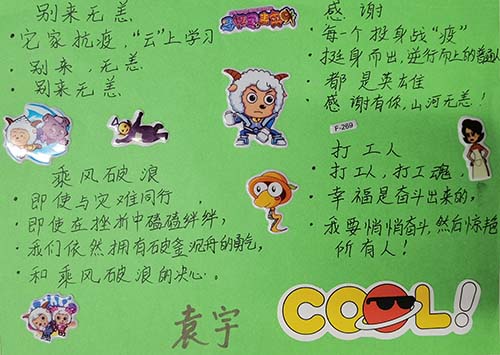 别来无恙
·宅家抗疫,“云”上学习
·别来,无恙
·别来无恙
乘风破浪
·即使与灾难同行,
·即使在挫折中磕磕绊绊,
·我们依然拥有破釜沉舟的勇气,
·和乘风破浪的决心。
感谢
·每一个投身战“疫”
·挺身而出,逆行而上的普通人
·都是英雄
·感谢有你,山河无恙!
F-269
打工人
·打工人,打工魂,
·幸福是奋斗出来的,
·我要悄悄奋斗,然后惊艳
所有人!
袁宇
COOL!